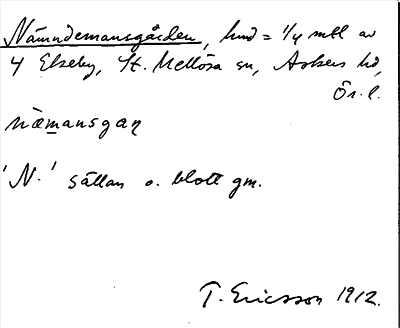 Nämndemansgården, hmd = 1/4 mtl av
4 Elseby, St. Mellösa sn, Askers hd,
Ör. l.
næmansgan
'N.' sällan o. blott gm.
T. Ericsson 1912.